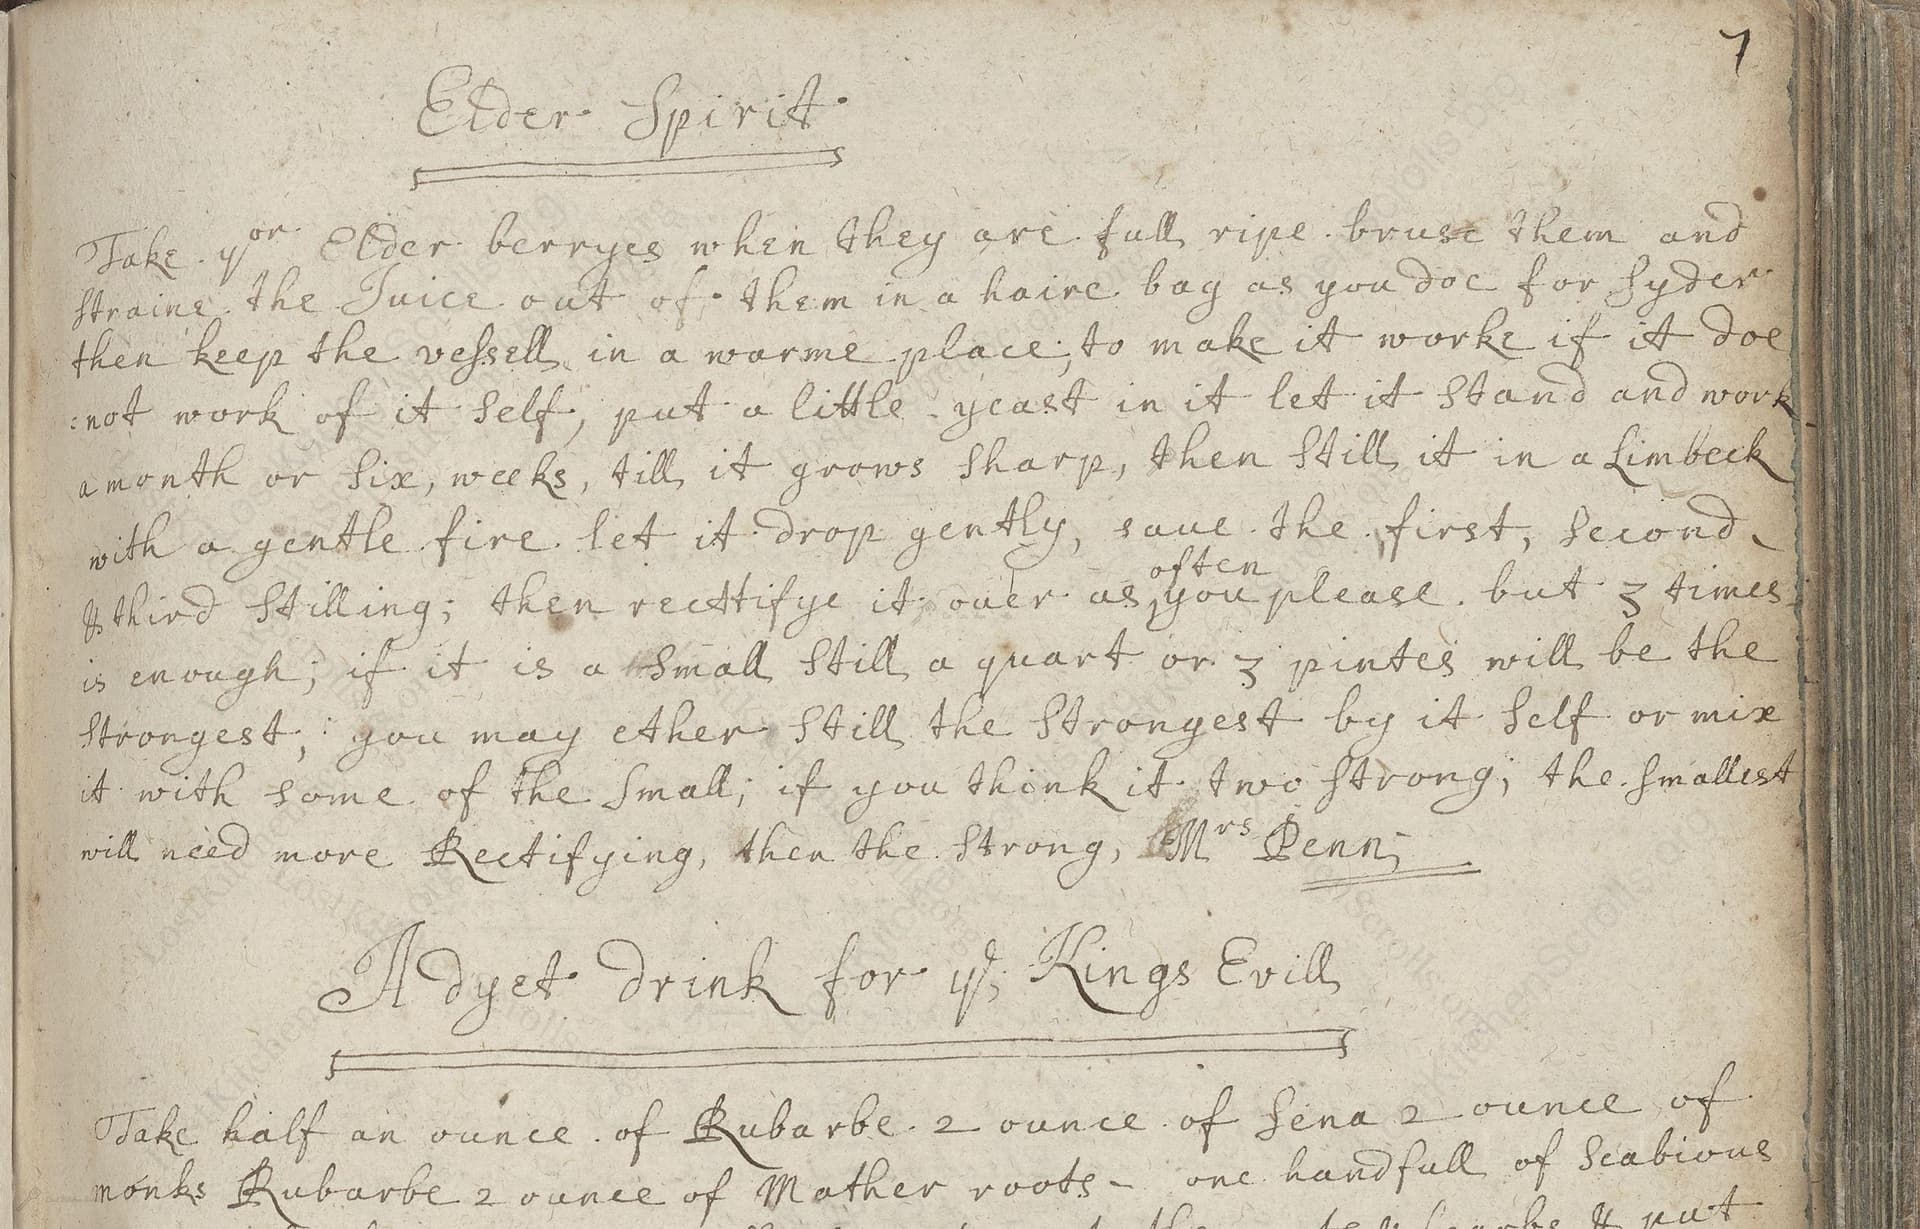 7
Elder Spirit
Take yor Elder berryes when they are full ripe bruse them and
straine the Juice out of them in a haire bag as you doe for Syder
then keep the vessell in a warme place, to make it worke if it doe
not work of it self, put a little yeast in it let it stand and work
a month or six, weeks, till it grows sharp, then still it in a Limbeck
with a gentle fire let it drop gently, saue the first, second
& third stilling; then recttifye it ouer as often you please but 3 times
is enough; if it is a small still a quart or 3 pintes will be the
strongest; you may ether still the strongest by it self or mix
it with some of the small; if you think it two strong; the smallest
will need more Rectifying, then the strong, Mrs Penn
A dyet drink for ye Kings Evill
Take half an ounce of Rubarbe 2 ounce of Sena 2 ounce of
monks Rubarbe 2 ounce of Mather roots - one handfull of Scabious
& put